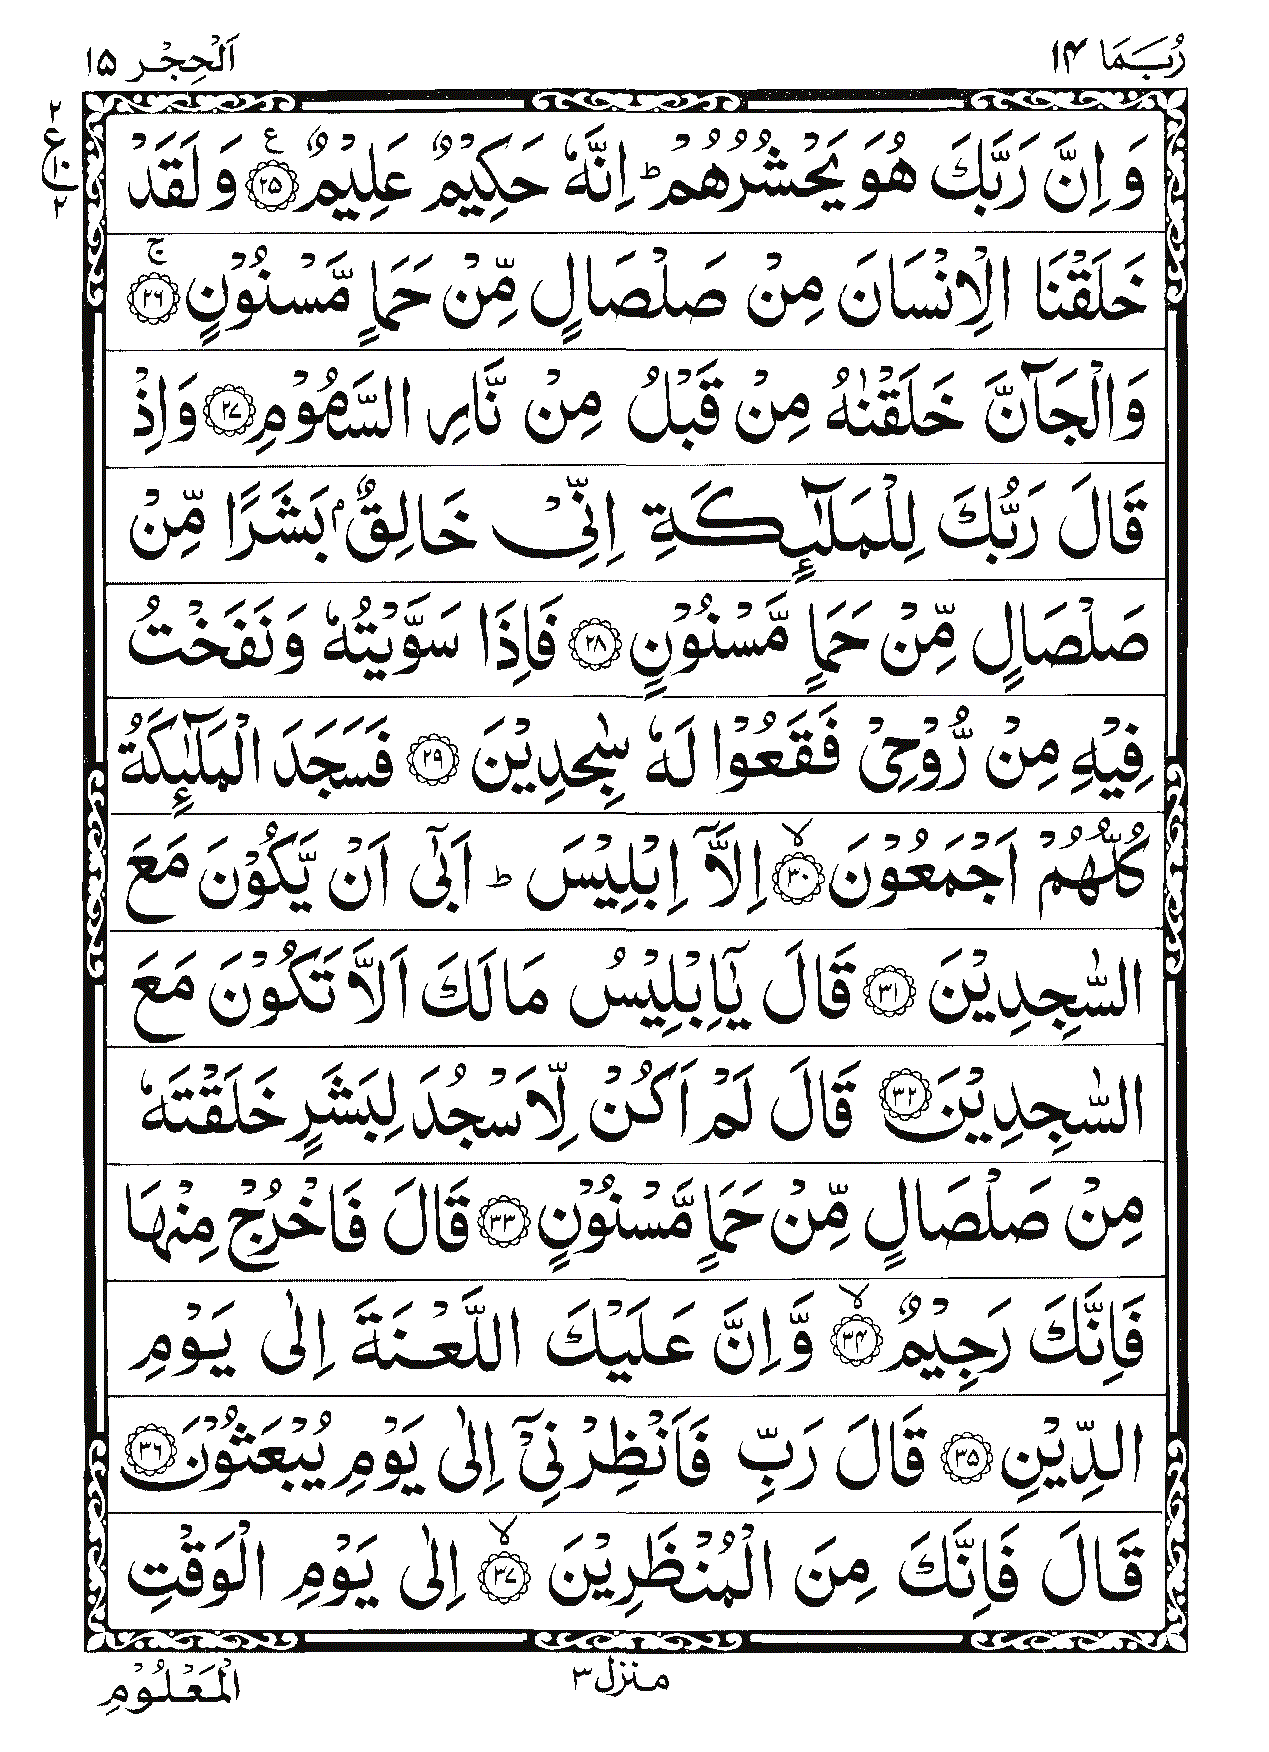 رُبَمَا ١۴
اَلْحِجْر ١۵
٢
ع
١٠
٢
وَ اِنَّ رَبَّكَ هُوَ يَحْشُرُهُمْ ؕ اِنَّهٗ حَكِيْمٌ عَلِيْمٌ ﴿٢۵﴾ ع وَ لَقَدْ
خَلَقْنَا الْاِنْسَانَ مِنْ صَلْصَالٍ مِّنْ حَمَاٍ مَّسْنُوْنٍ ﴿٢٦﴾ ج
وَالْجَآنَّ خَلَقْنٰهُ مِنْ قَبْلُ مِنْ نَّارِ السَّمُوْمِ ﴿٢٧﴾ وَاِذْ
قَالَ رَبُّكَ لِلْمَلٰٓئِكَةِ اِنِّىْ خَالِقٌۢ بَشَرًا مِّنْ
صَلْصَالٍ مِّنْ حَمَاٍ مَّسْنُوْنٍ ﴿٢٨﴾ فَاِذَا سَوَّيْتُهٗ وَنَفَخْتُ
فِيْهِ مِنْ رُّوْحِىْ فَقَعُوْا لَهٗ سٰجِدِيْنَ ﴿٢٩﴾ فَسَجَدَ الْمَلٰٓئِكَةُ
كُلُّهُمْ اَجْمَعُوْنَ ﴿٣٠﴾ ۙ اِلَّاۤ اِبْلِيْسَ ؕ اَبٰٓى اَنْ يَّكُوْنَ مَعَ
السّٰجِدِيْنَ ﴿٣١﴾ قَالَ يٰۤاِبْلِيْسُ مَا لَكَ اَلَّا تَكُوْنَ مَعَ
السّٰجِدِيْنَ ﴿٣٢﴾ قَالَ لَمْ اَكُنْ لِّاَسْجُدَ لِبَشَرٍ خَلَقْتَهٗ
مِنْ صَلْصَالٍ مِّنْ حَمَاٍ مَّسْنُوْنٍ ﴿٣٣﴾ قَالَ فَاخْرُجْ مِنْهَا
فَاِنَّكَ رَجِيْمٌ ﴿٣۴﴾ ۙ وَّاِنَّ عَلَيْكَ اللَّعْنَةَ اِلٰى يَوْمِ
الدِّيْنِ ﴿٣۵﴾ قَالَ رَبِّ فَاَنْظِرْنِىْۤ اِلٰى يَوْمِ يُبْعَثُوْنَ ﴿٣٦﴾
قَالَ فَاِنَّكَ مِنَ الْمُنْظَرِيْنَ ﴿٣٧﴾ ۙ اِلٰى يَوْمِ الْوَقْتِ
منزل ٣
الْمَعْلُوْمِ